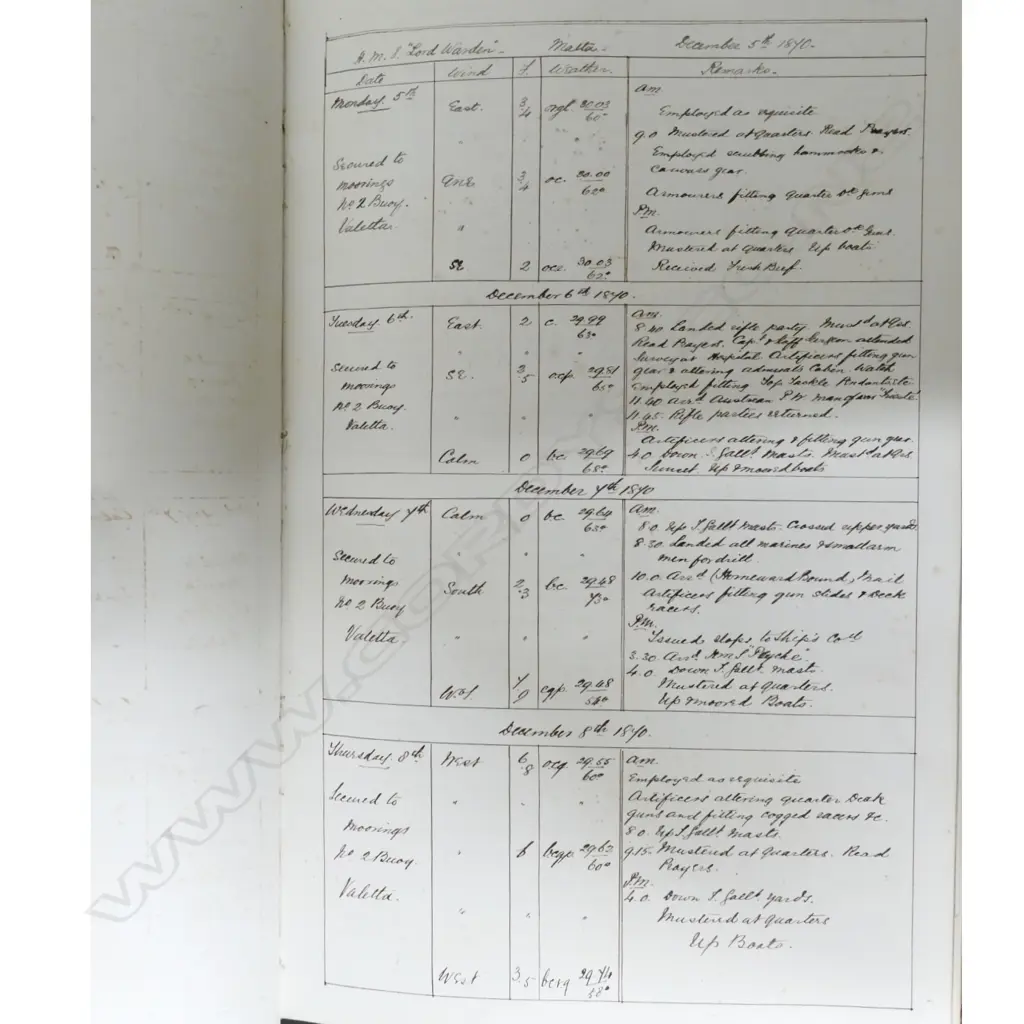 H.M.S. "Lord Warden" - Malta - December 5th 1870.
Date Wind F. Weather. Remarks.
Monday. 5th
Secured to
moorings
No 2 Buoy.
Valetta.
East. 3/4 30.03/60°
" " "
ENE 3/4 oc. 30.00/62°
"
SE 2 oce. 30.03/62°
am
Employed as requisite
9.0 Mustered at quarters. Read Prayers.
Employed scrubbing hammocks &
canvas gear.
Armourers fitting quarter Dk Guns
P.m.
Armourers fitting quarter Dk Guns.
Mustered at quarters. Up boats
Received Fresh Beef.
December 6th 1870.
Tuesday. 6th.
Secured to
moorings
No 2 Buoy.
Valetta.
East. 2 c. 29.99/63°
" " "
SE. 3/5 ocp. 29.81/65°
" " "
Calm 0 bc. 29.69/68°
Am.
8.40 Landed rifle party. Mus'd at Qrs.
Read Prayers. Capt & Staff Surgeon attended
Survey at Hospital Artificers fitting gun
gear & altering admirals Cabin. Watch
Employed fitting Top Tackle Pendants &c
11.40 Arrd Austrian from Trieste
11.45. Rifle parties returned.
P.m.
Artificers altering & fitting gun gear.
4.0 Down T. Gallt Masts. Must'd at Qrs.
Sunset. Up & moored boats
December 7th 1870
Wednesday 7th
Secured to
Moorings
No 2 Buoy
Valetta
Calm 0 bc. 29.64/63°
" " "
South 2.3 bc 29.48/73°
" " "
7/9 cgp. 29.48/
Am.
8.0. Up T. Gallt Masts. Crossed upper yards.
8.30. Landed all marines & small arm
men for drill.
10.0. Arrd (Homeward Bound) Mail
Artificers fitting gun slides & Deck
racers.
P.m.
Issued slops to Ship's Co
3.30. Arrd. H.M.S "Psyche".
4.0. Down T. Gallt. masts.
Mustered at quarters.
Up & moored Boats.
December 8th 1870.
Thursday. 8th
Secured to
Moorings
No 2 Buoy.
Valetta.
West 6.8 ocq 29.55/60°
" " "
" 6 bcqp. 29.63/60°
" " "
West 3.5 29.76/58°
am.
Employed as requisite
Artificers altering quarter Deck
guns and fitting cogged racers &c.
8.0. Up T. Gallt. Masts.
9.15. Mustered at Quarters. Read
Prayers.
P.M.
4.0. Down T. Gallt. yards.
Mustered at quarters
Up Boats.